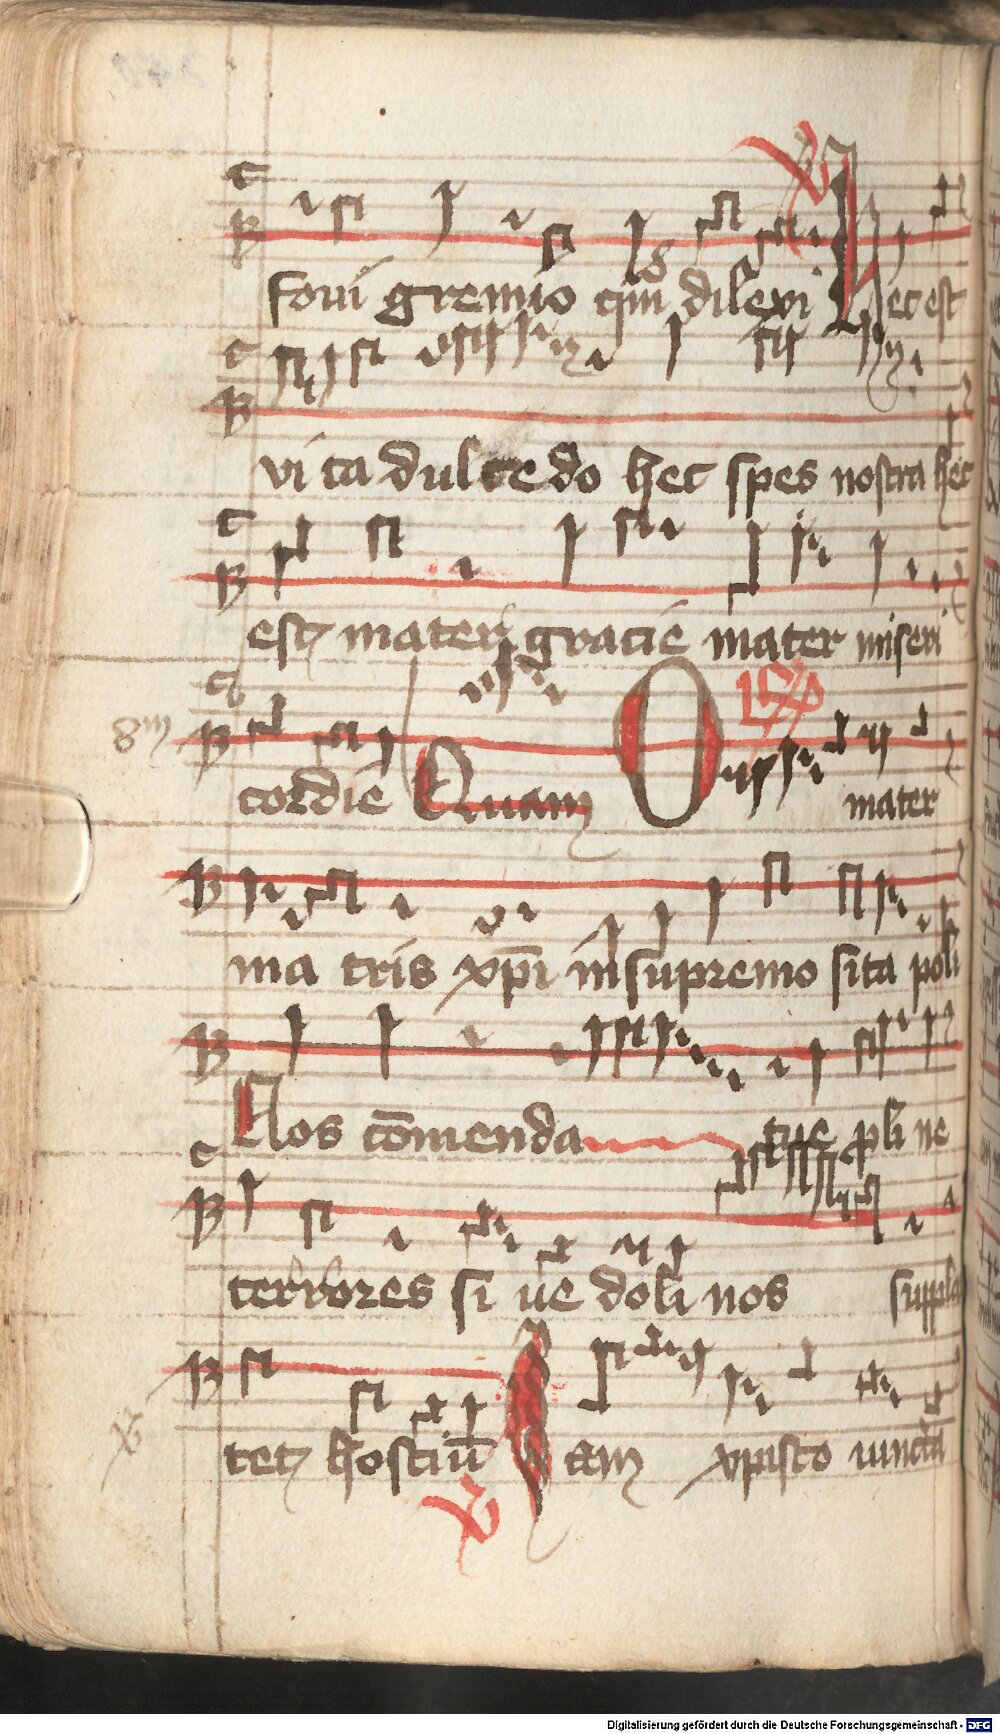 foui gremio q̄m dilexi Hec est
vita dulcedo hec spes nostra hec
est mater gracie mater miseri
8m cordie Quam O mater
ma tris xp̄i in supremo sita poli
Nos cōmenda tue ꝓli ne
terrores si ue doli nos suppla
tet hostiū Iam xpisto iuncta
Digitalisierung gefördert durch die Deutsche Forschungsgemeinschaft - DFG